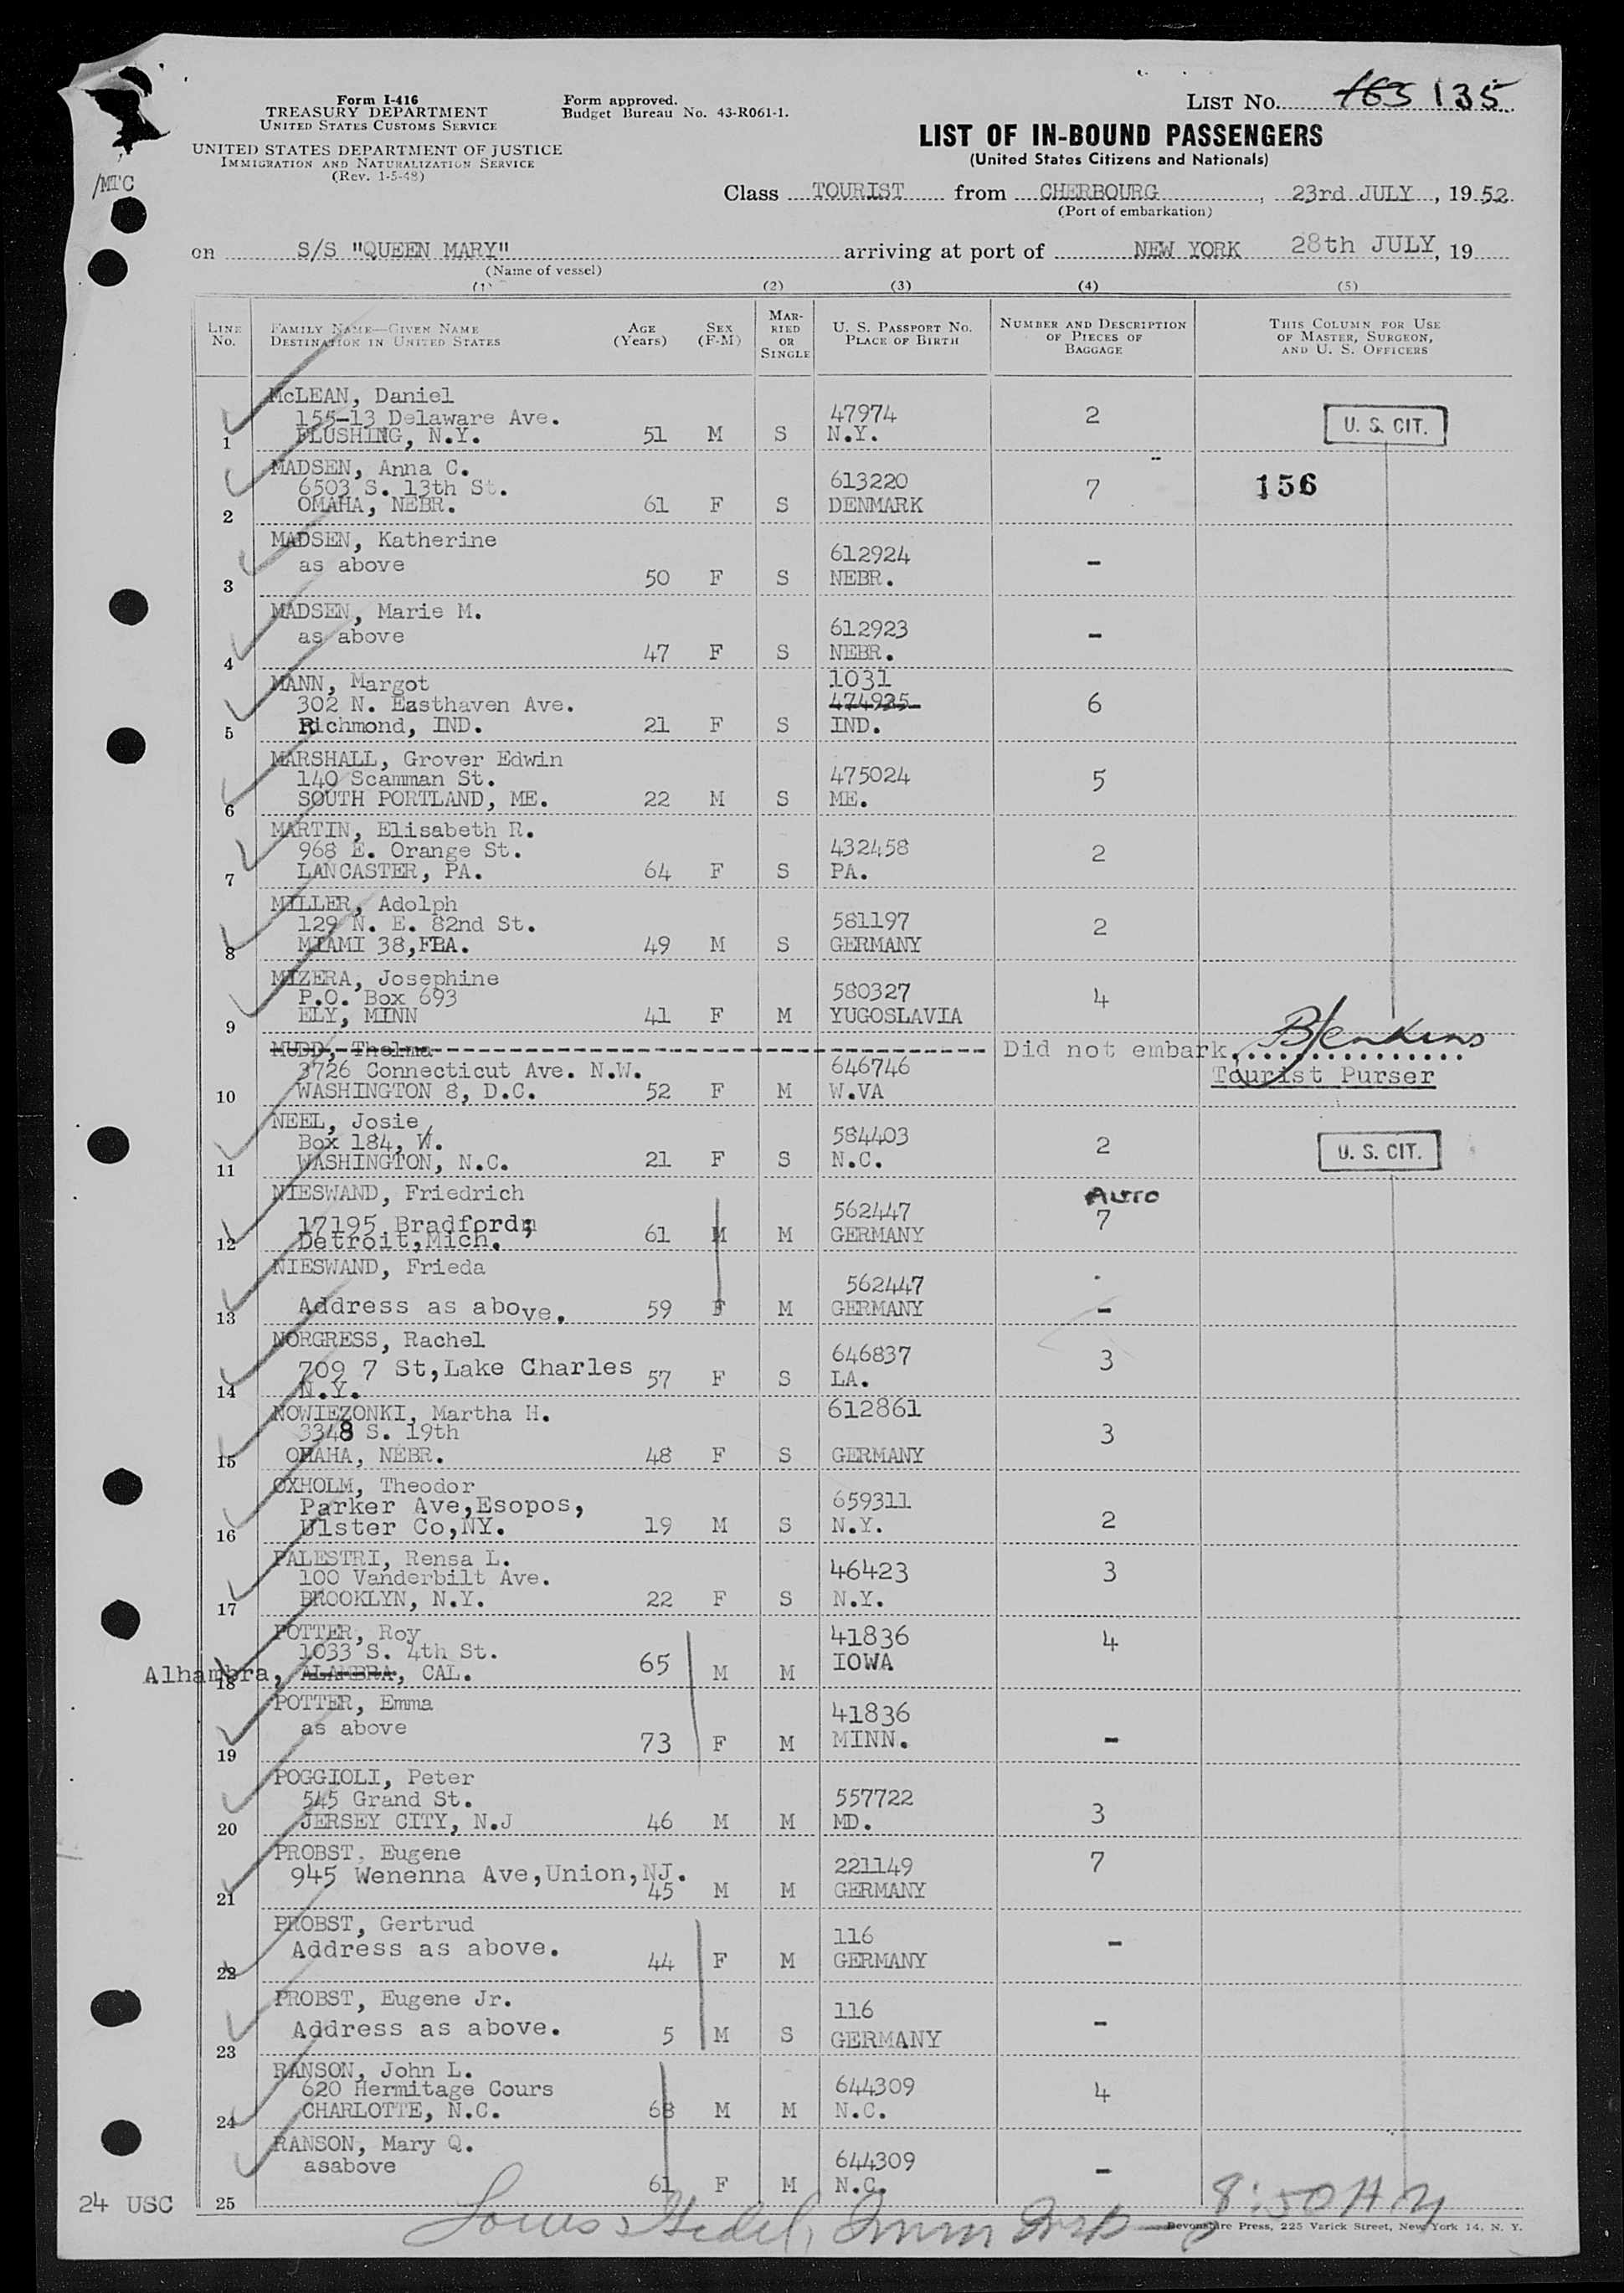 Form I-416
TREASURY DEPARTMENT
UNITED STATES CUSTOMS SERVICE
UNITED STATES DEPARTMENT OF JUSTICE
IMMIGRATION AND NATURALIZATION SERVICE
(Rev. 1-5-48)
Form approved.
Budget Bureau No. 43-R061-1.
LIST No. 165 135
LIST OF IN-BOUND PASSENGERS
(United States Citizens and Nationals)
/MTC
Class TOURIST from CHERBOURG, 23rd JULY, 1952
(Port of embarkation)
on S/S "QUEEN MARY" arriving at port of NEW YORK 28th JULY, 19
(Name of vessel)
(1) (2) (3) (4) (5)
LINE NO. FAMILY NAME—GIVEN NAME DESTINATION IN UNITED STATES AGE (Years) SEX (F-M) MARRIED OR SINGLE U. S. PASSPORT NO. PLACE OF BIRTH NUMBER AND DESCRIPTION OF PIECES OF BAGGAGE THIS COLUMN FOR USE OF MASTER, SURGEON, AND U. S. OFFICERS
McLEAN, Daniel
155-13 Delaware Ave. 47974 2 U. S. CIT.
1 FLUSHING, N.Y. 51 M S N.Y.
MADSEN, Anna C.
6503 S. 13th St. 613220 7 156
2 OMAHA, NEBR. 61 F S DENMARK
MADSEN, Katherine
as above 612924 -
3 50 F S NEBR.
MADSEN, Marie M.
as above 612923 -
4 47 F S NEBR.
MANN, Margot 1031
302 N. Easthaven Ave. 474925 6
5 Richmond, IND. 21 F S IND.
MARSHALL, Grover Edwin
140 Scamman St. 475024 5
6 SOUTH PORTLAND, ME. 22 M S ME.
MARTIN, Elisabeth R.
968 E. Orange St. 432458 2
7 LANCASTER, PA. 64 F S PA.
MILLER, Adolph
129 N. E. 82nd St. 581197 2
8 MIAMI 38,FLA. 49 M S GERMANY
MIZERA, Josephine
P.O. Box 693 580327 4
9 ELY, MINN 41 F M YUGOSLAVIA
MUDD, Thelma Did not embark, BJenkins
3726 Connecticut Ave. N.W. 646746 Tourist Purser
10 WASHINGTON 8, D.C. 52 F M W.VA
NEEL, Josie
Box 184, W. 584403 2 U. S. CIT.
11 WASHINGTON, N.C. 21 F S N.C.
NIESWAND, Friedrich AUTO
17195 Bradford; 562447 7
12 Detroit,Mich. 61 M M GERMANY
NIESWAND, Frieda
562447
13 Address as above. 59 F M GERMANY -
NORGRESS, Rachel
709 7 St,Lake Charles 646837 3
14 N.Y. 57 F S LA.
NOWIEZONKI, Martha H. 612861
3348 S. 19th 3
15 OMAHA, NEBR. 48 F S GERMANY
OXHOLM, Theodor
Parker Ave,Esopos, 659311
16 Ulster Co,NY. 19 M S N.Y. 2
PALESTRI, Rensa L.
100 Vanderbilt Ave. 46423 3
17 BROOKLYN, N.Y. 22 F S N.Y.
POTTER, Roy 41836
1033 S. 4th St. 4
18 Alhambra, ALAMBRA, CAL. 65 M M IOWA
POTTER, Emma 41836
as above
19 73 F M MINN. -
POGGIOLI, Peter
545 Grand St. 557722
20 JERSEY CITY, N.J 46 M M MD. 3
PROBST, Eugene
945 Wenenna Ave,Union,NJ. 221149 7
21 45 M M GERMANY
PROBST, Gertrud
Address as above. 116 -
22 44 F M GERMANY
PROBST, Eugene Jr. 116
Address as above. -
23 5 M S GERMANY
RANSON, John L.
620 Hermitage Cours 644309 4
24 CHARLOTTE, N.C. 68 M M N.C.
RANSON, Mary Q.
asabove 644309 -
25 61 F M N.C.
24 USC
8:50 AM
Imm Insp
Devonshire Press, 225 Varick Street, New York 14, N. Y.